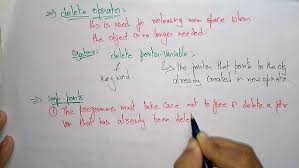 delete operator:-
→ This is used for releasing mem space when
the object is no longer needed.
Syntax: delete pointer-variable;
↓ ↳ the pointer that points to the obj
key word. already created in new operator
⇒ Imp points
① The programmer must take care not to free or delete a ptr
var that has already been delet